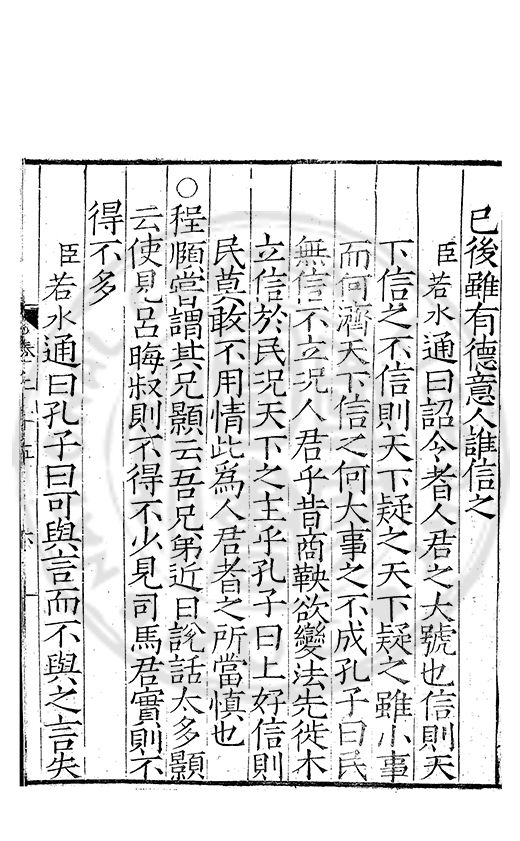 已後雖有德意人誰信之
臣若水通曰詔令者人君之大號也信則天
下信之不信則天下疑之天下疑之雖小事
而何濟天下信之何大事之不成孔子曰民
無信不立況人君乎昔商鞅欲變法先徙木
立信於民況天下之主乎孔子曰上好信則
民莫敢不用情此為人君者之所當慎也
○程頤嘗謂其兄顥云吾兄弟近日說話太多顥
云使見呂晦叔則不得不少見司馬君實則不
得不多
臣若水通曰孔子曰可與言而不與之言失